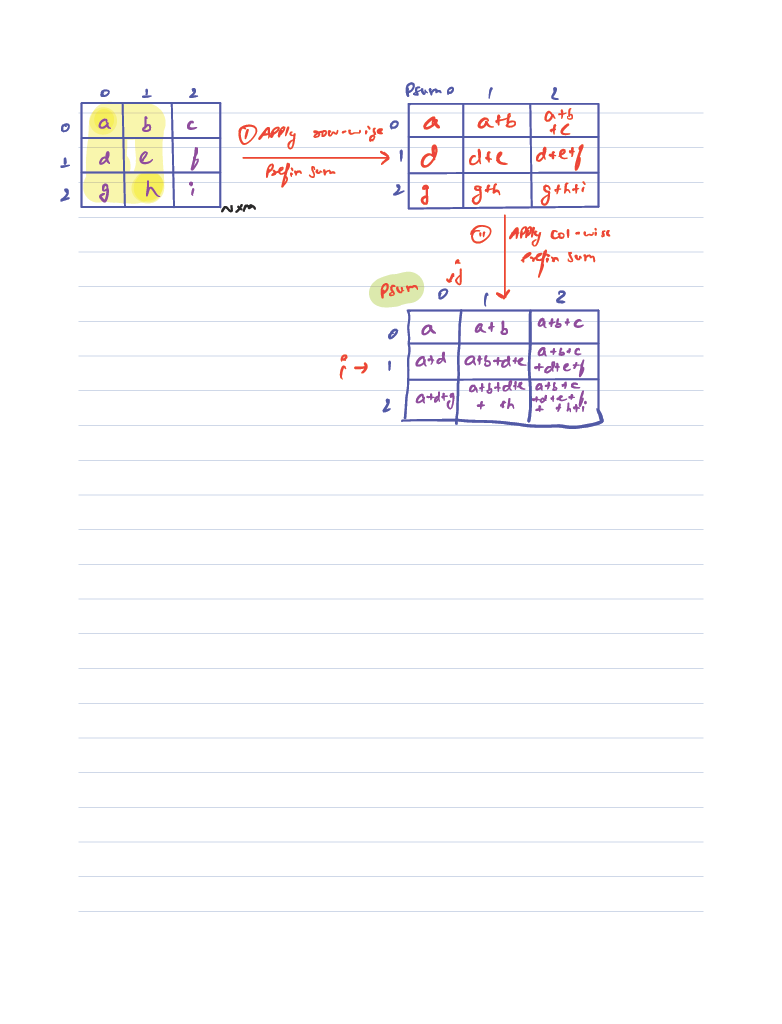 0 1 2
0 a b c
1 d e f
2 g h i
N×M
① Apply row-wise
Prefix sum
Psum 0 1 2
0 a a+b a+b
+c
1 d d+e d+e+f
2 g g+h g+h+i
② Apply col-wise
Prefix sum
Psum
j
0 1 2
0 a a+b a+b+c
i → 1 a+d a+b+d+e a+b+c
+d+e+f
2 a+d+g a+b+d+e a+b+c
+ h +d+e+f
+ +h+i